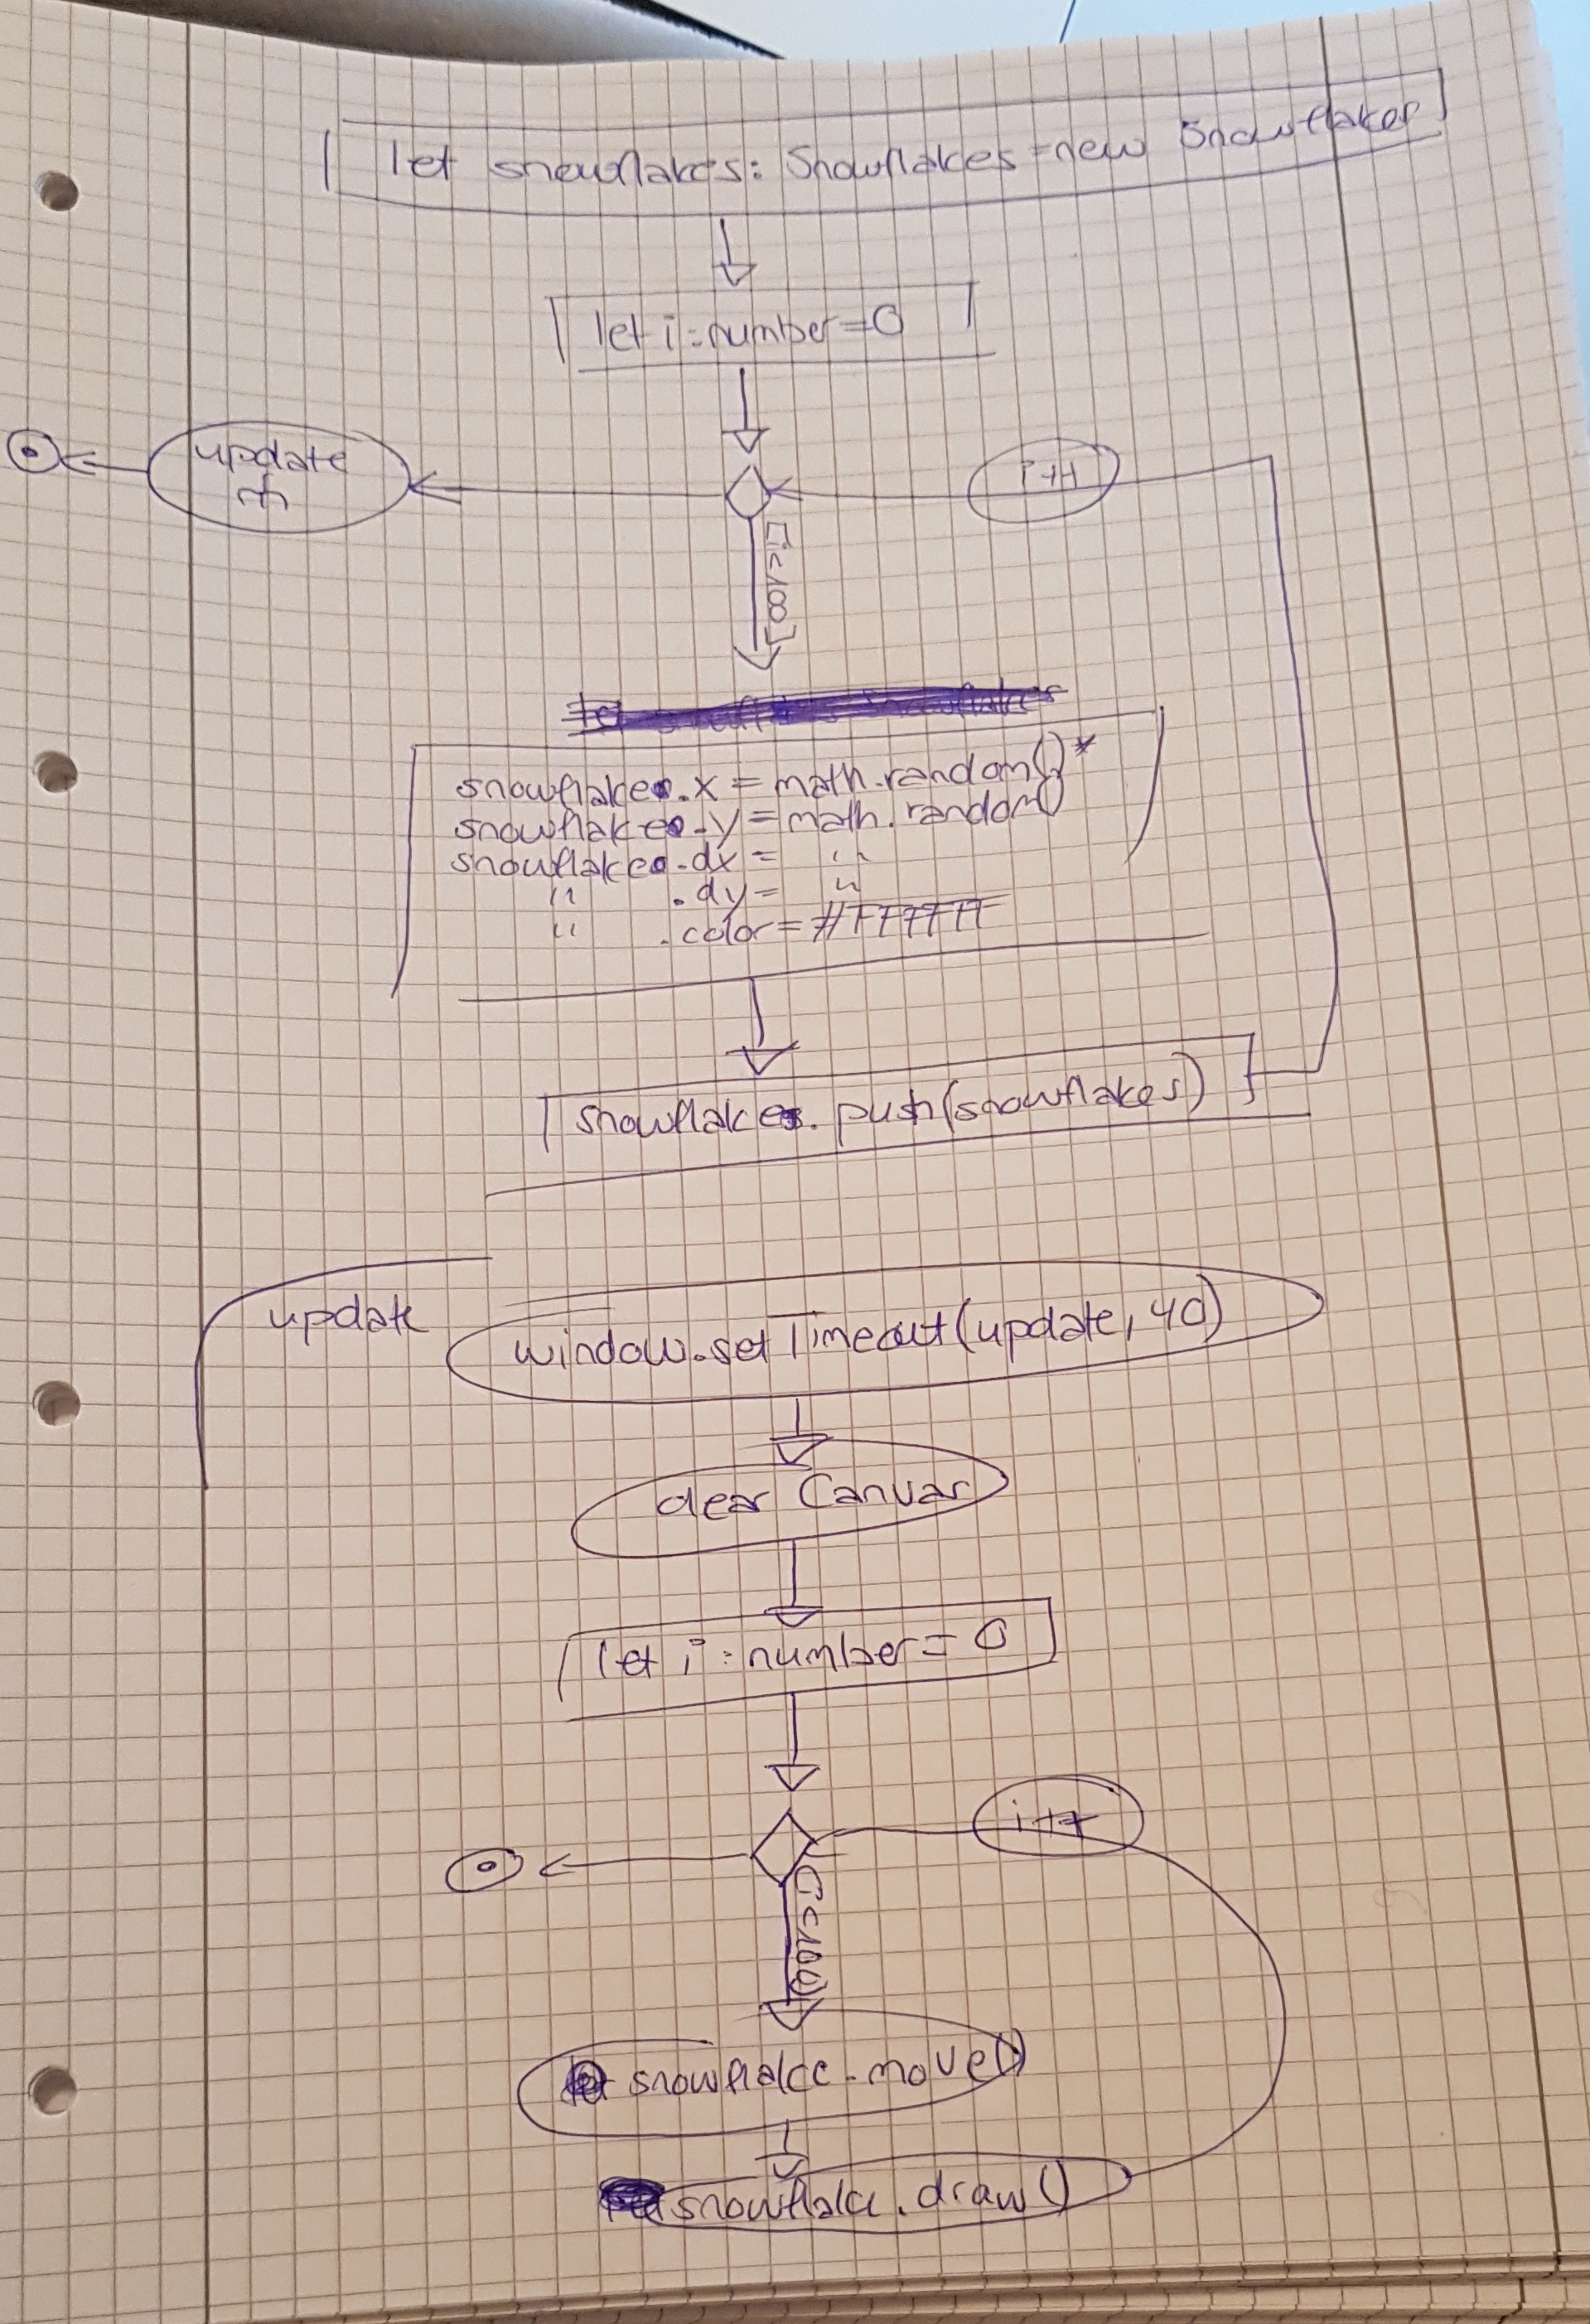 let snowflakes: Snowflakes = new Snowflakes
let i : number = 0
update
i++
[i<100]
snowflake.x = math.random() *
snowflake.y = math.random()
snowflake.dx = "
" .dy = "
" .color = #FFFFFF
snowflakes.push(snowflakes)
update
window.setTimeout(update, 40)
clear Canvas
let i : number = 0
i++
[i<100]
snowflake.move()
snowflake.draw()